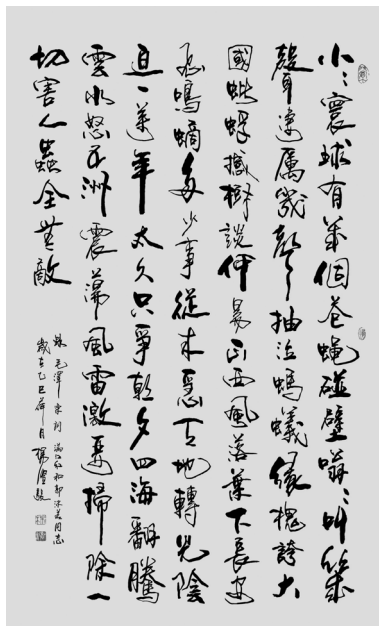 小々寰球有幾個苍蝇碰壁嗡々叫幾
聲凄厲幾聲抽泣螞蟻緣槐誇大
國蚍蜉撼樹談何易正西風落葉下長安
飛鳴鏑多少事從来急天地轉光陰
迫一萬年太久只爭朝夕四海翻騰
雲水怒五洲震蕩風雷激要掃除一
切害人蟲全無敵
錄毛澤東詞滿江红和郭沫若同志
歲在乙巳荷月